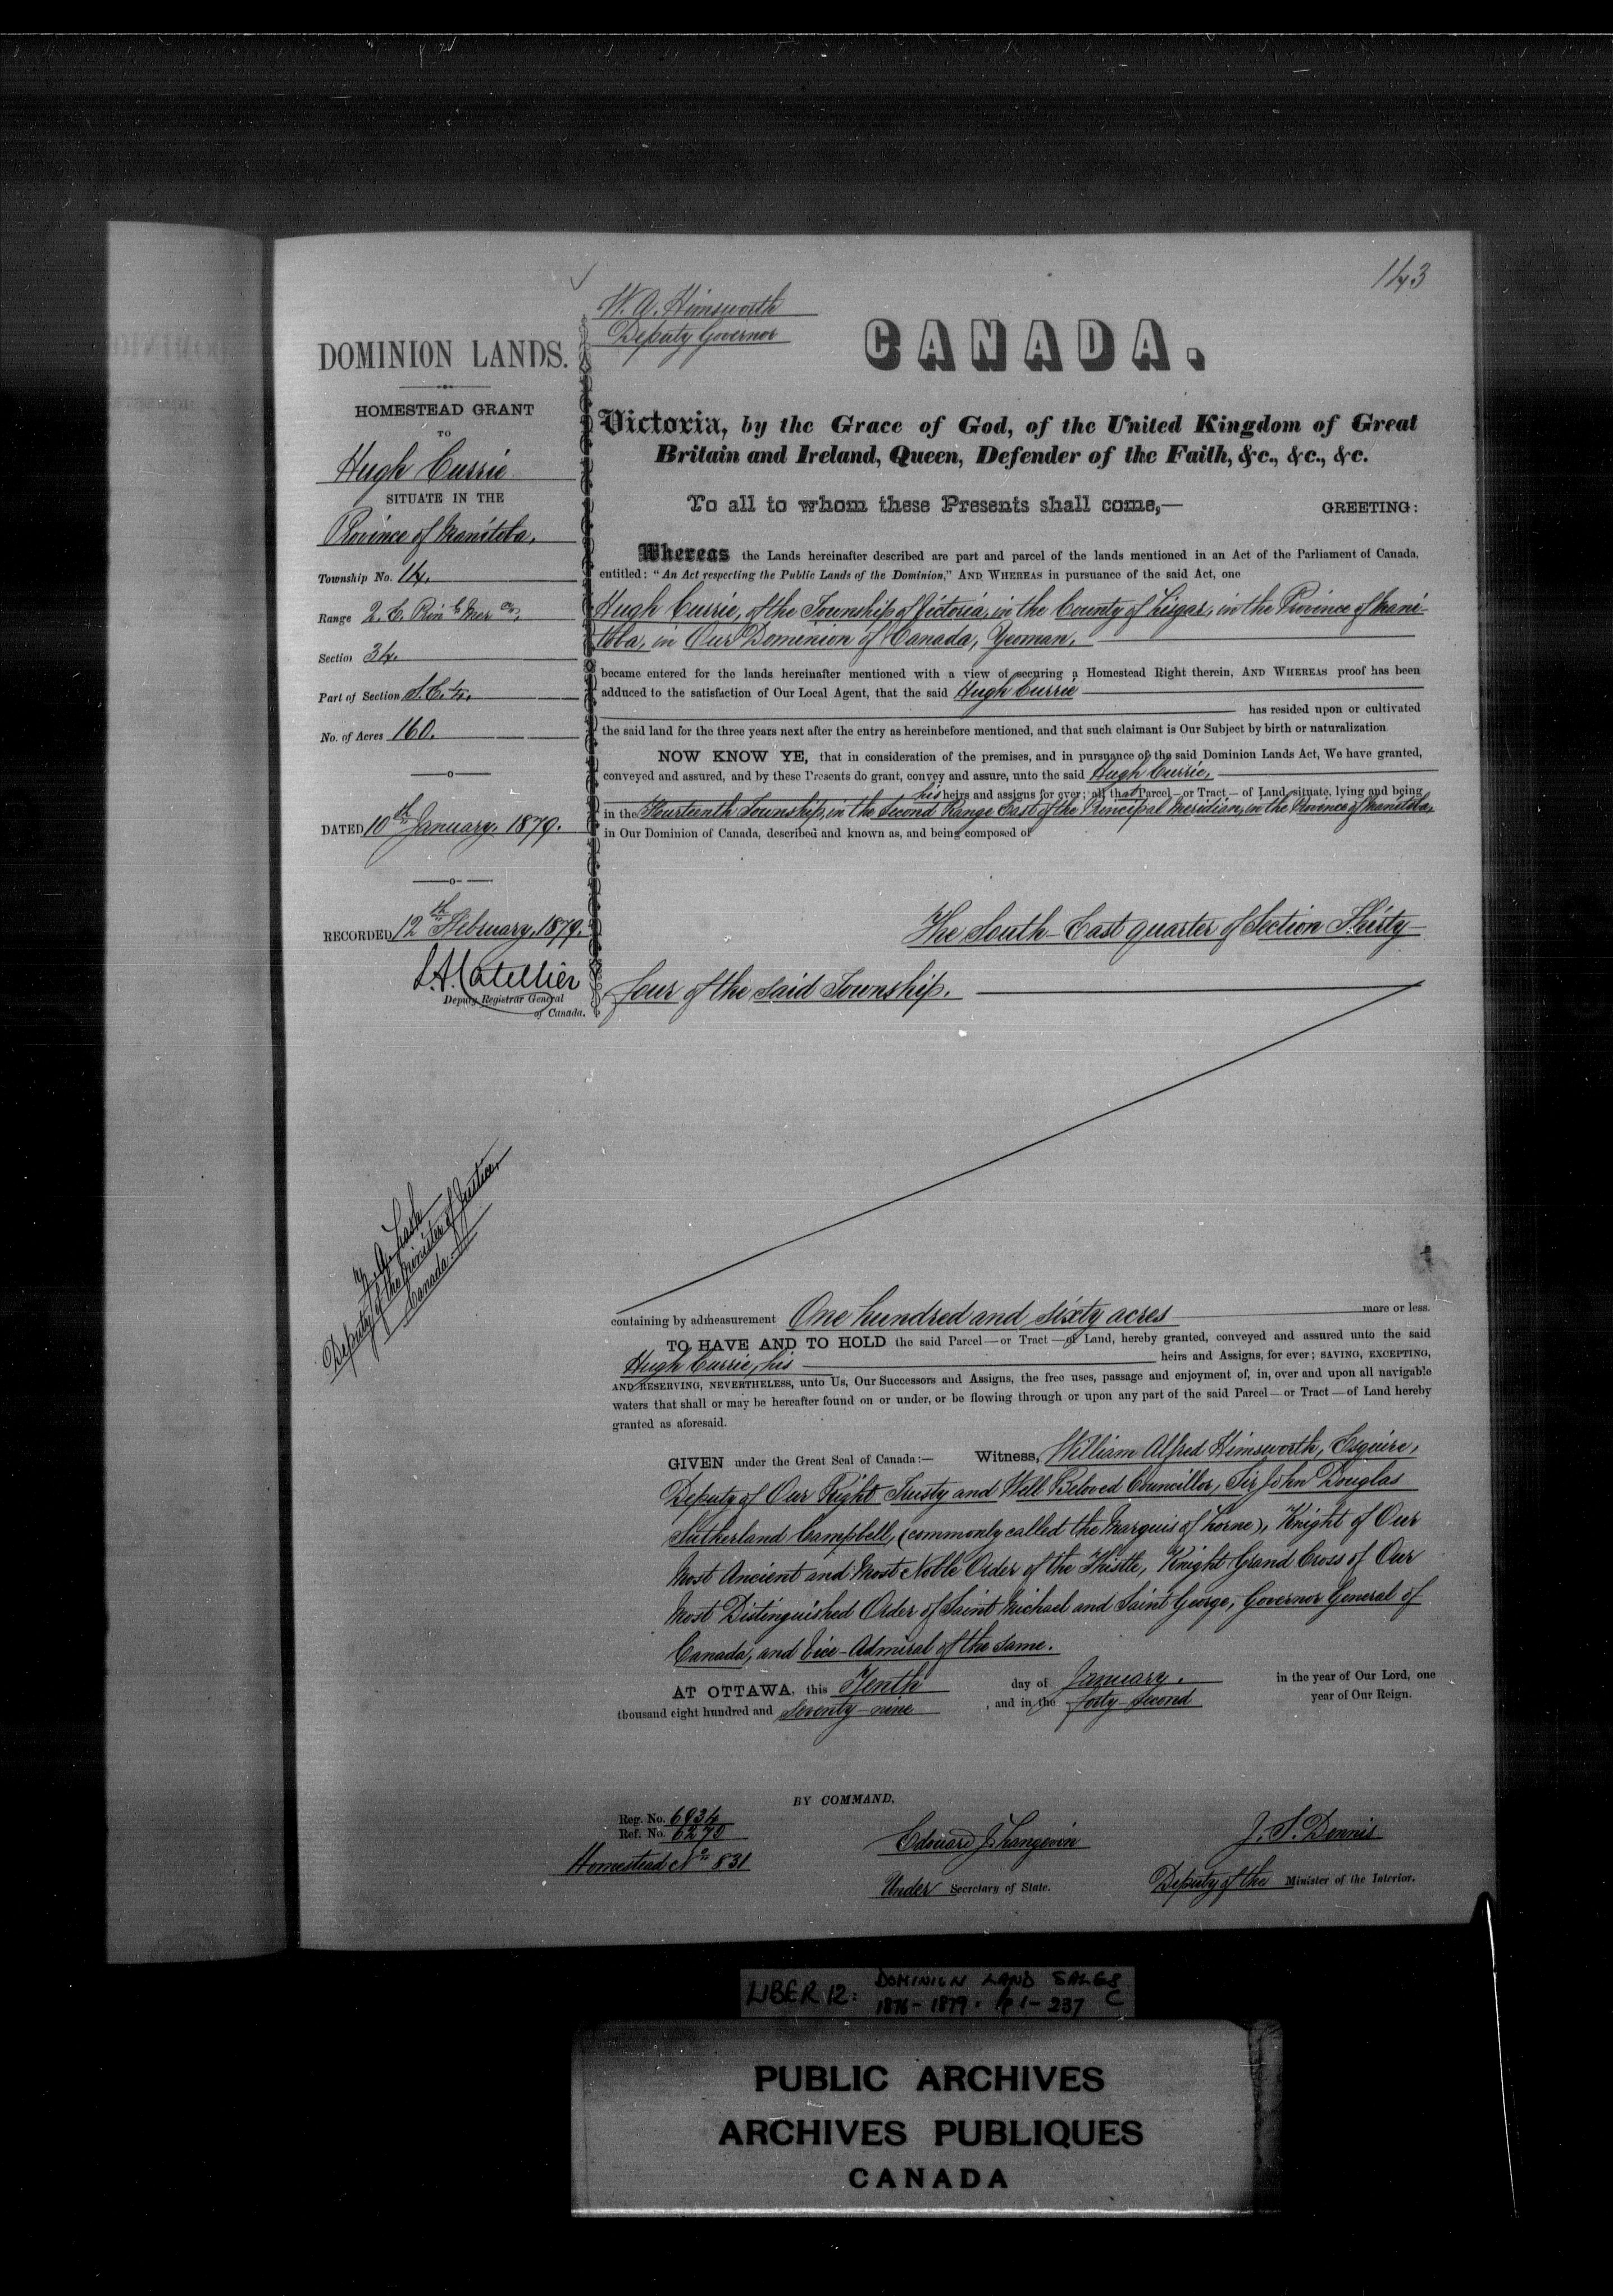 143
W. A. Himsworth
Deputy Governor
CANADA.
DOMINION LANDS.
HOMESTEAD GRANT
TO
Hugh Currie
SITUATE IN THE
Province of Manitoba.
Township No. 14.
Range 2. E. Prin l Mer an,
Section 34.
Part of Section S. E. ¼.
No. of Acres 160.
DATED 10th January, 1879.
RECORDED 12th February, 1879.
L. A. Catellier
Deputy Registrar General
of Canada.
Z. A. Lash
Deputy of the Minister of Justice,
Canada.
Victoria, by the Grace of God, of the United Kingdom of Great
Britain and Ireland, Queen, Defender of the Faith, &c., &c., &c.
To all to whom these Presents shall come,— GREETING:
Whereas the Lands hereinafter described are part and parcel of the lands mentioned in an Act of the Parliament of Canada,
entitled: "An Act respecting the Public Lands of the Dominion," AND WHEREAS in pursuance of the said Act, one
Hugh Currie, of the Township of Victoria, in the County of Lisgar, in the Province of Mani-
toba, in Our Dominion of Canada, Yeoman.
became entered for the lands hereinafter mentioned with a view of securing a Homestead Right therein, AND WHEREAS proof has been
adduced to the satisfaction of Our Local Agent, that the said Hugh Currie
has resided upon or cultivated
the said land for the three years next after the entry as hereinbefore mentioned, and that such claimant is Our Subject by birth or naturalization
NOW KNOW YE, that in consideration of the premises, and in pursuance of the said Dominion Lands Act, We have granted,
conveyed and assured, and by these Presents do grant, convey and assure, unto the said Hugh Currie,
his heirs and assigns for ever; all that Parcel—or Tract—of Land, situate, lying and being
in the Fourteenth Township, in the Second Range East of the Principal Meridian, in the Province of Manitoba,
in Our Dominion of Canada, described and known as, and being composed of
The South-East quarter of Section Thirty
four of the said Township.
containing by admeasurement One hundred and sixty acres more or less.
TO HAVE AND TO HOLD the said Parcel—or Tract—of Land, hereby granted, conveyed and assured unto the said
Hugh Currie, his heirs and Assigns, for ever; SAVING, EXCEPTING,
AND RESERVING, NEVERTHELESS, unto Us, Our Successors and Assigns, the free uses, passage and enjoyment of, in, over and upon all navigable
waters that shall or may be hereafter found on or under, or be flowing through or upon any part of the said Parcel—or Tract—of Land hereby
granted as aforesaid.
GIVEN under the Great Seal of Canada:— Witness, William Alfred Himsworth, Esquire,
Deputy of Our Right Trusty and Well Beloved Councillor, Sir John Douglas
Sutherland Campbell, (commonly called the Marquis of Lorne), Knight of Our
Most Ancient and Most Noble Order of the Thistle, Knight Grand Cross of Our
Most Distinguished Order of Saint Michael and Saint George, Governor General of
Canada, and Vice-Admiral of the same.
AT OTTAWA, this Tenth day of January. in the year of Our Lord, one
thousand eight hundred and Seventy-nine, and in the forty-second year of Our Reign.
BY COMMAND,
Reg. No. 6934
Ref. No. 6270
Homestead No 831
Edouard J. Langevin
Under Secretary of State.
J. S. Dennis
Deputy of the Minister of the Interior.
LIBER 12: DOMINION LAND SALES
1876-1879. pp 1-237 C
PUBLIC ARCHIVES
ARCHIVES PUBLIQUES
CANADA